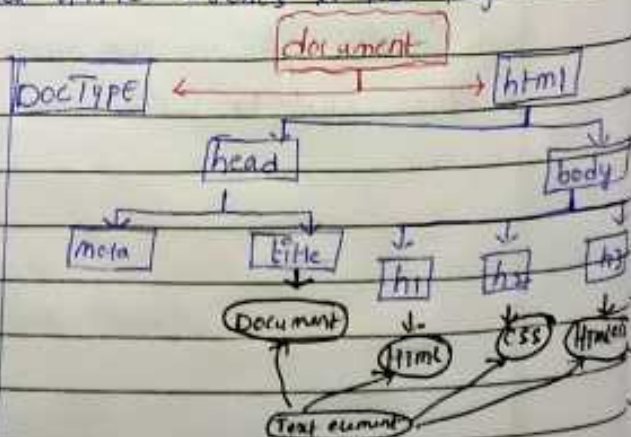 document
DOCTYPE html
head body
meta title h1 h2 h3
Document Html CSS
Text element